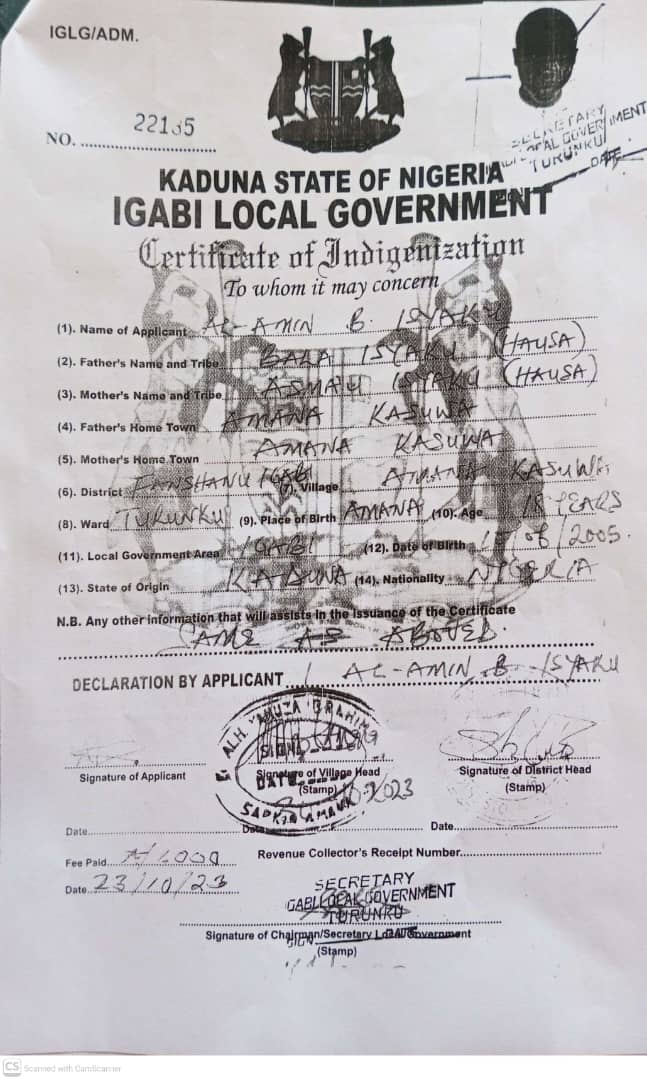 IGLG/ADM.
NO.
SECRETARY
LOCAL GOVERNMENT
TURUNKU
DATE
KADUNA STATE OF NIGERIA
IGABI LOCAL GOVERNMENT
Certificate of Indigenization
To whom it may concern
(1). Name of Applicant AL-AMIN B. ISYAKU
(2). Father's Name and Tribe BALA ISYAKU (HAUSA)
(3). Mother's Name and Tribe ASMAU ISYAKU (HAUSA)
(4). Father's Home Town AMANA KASUWA
(5). Mother's Home Town AMANA KASUWA
(6). District FANSHANU IGABI (7). Village AMANA KASUWA
(8). Ward TURUNKU (9). Place of Birth AMANA (10). Age 18 YEARS
(11). Local Government Area IGABI (12). Date of Birth 2005.
(13). State of Origin KADUNA (14). Nationality NIGERIA
N.B. Any other information that will assists in the Issuance of the Certificate
SAME AS ABOVED.
DECLARATION BY APPLICANT I AL-AMIN B. ISYAKU
ALH. YAHUZA IBRAHIM
SIGN
DATE
SARKIN AMANA
Signature of Applicant
Signature of Village Head
(Stamp)
2023
Signature of District Head
(Stamp)
Date
Date
Date
Fee Paid ₦1,000
Revenue Collector's Receipt Number
Date 23/10/23
SECRETARY
IGABI LOCAL GOVERNMENT
TURUNKU
Signature of Chairman/Secretary Local Government
(Stamp)
CS Scanned with CamScanner